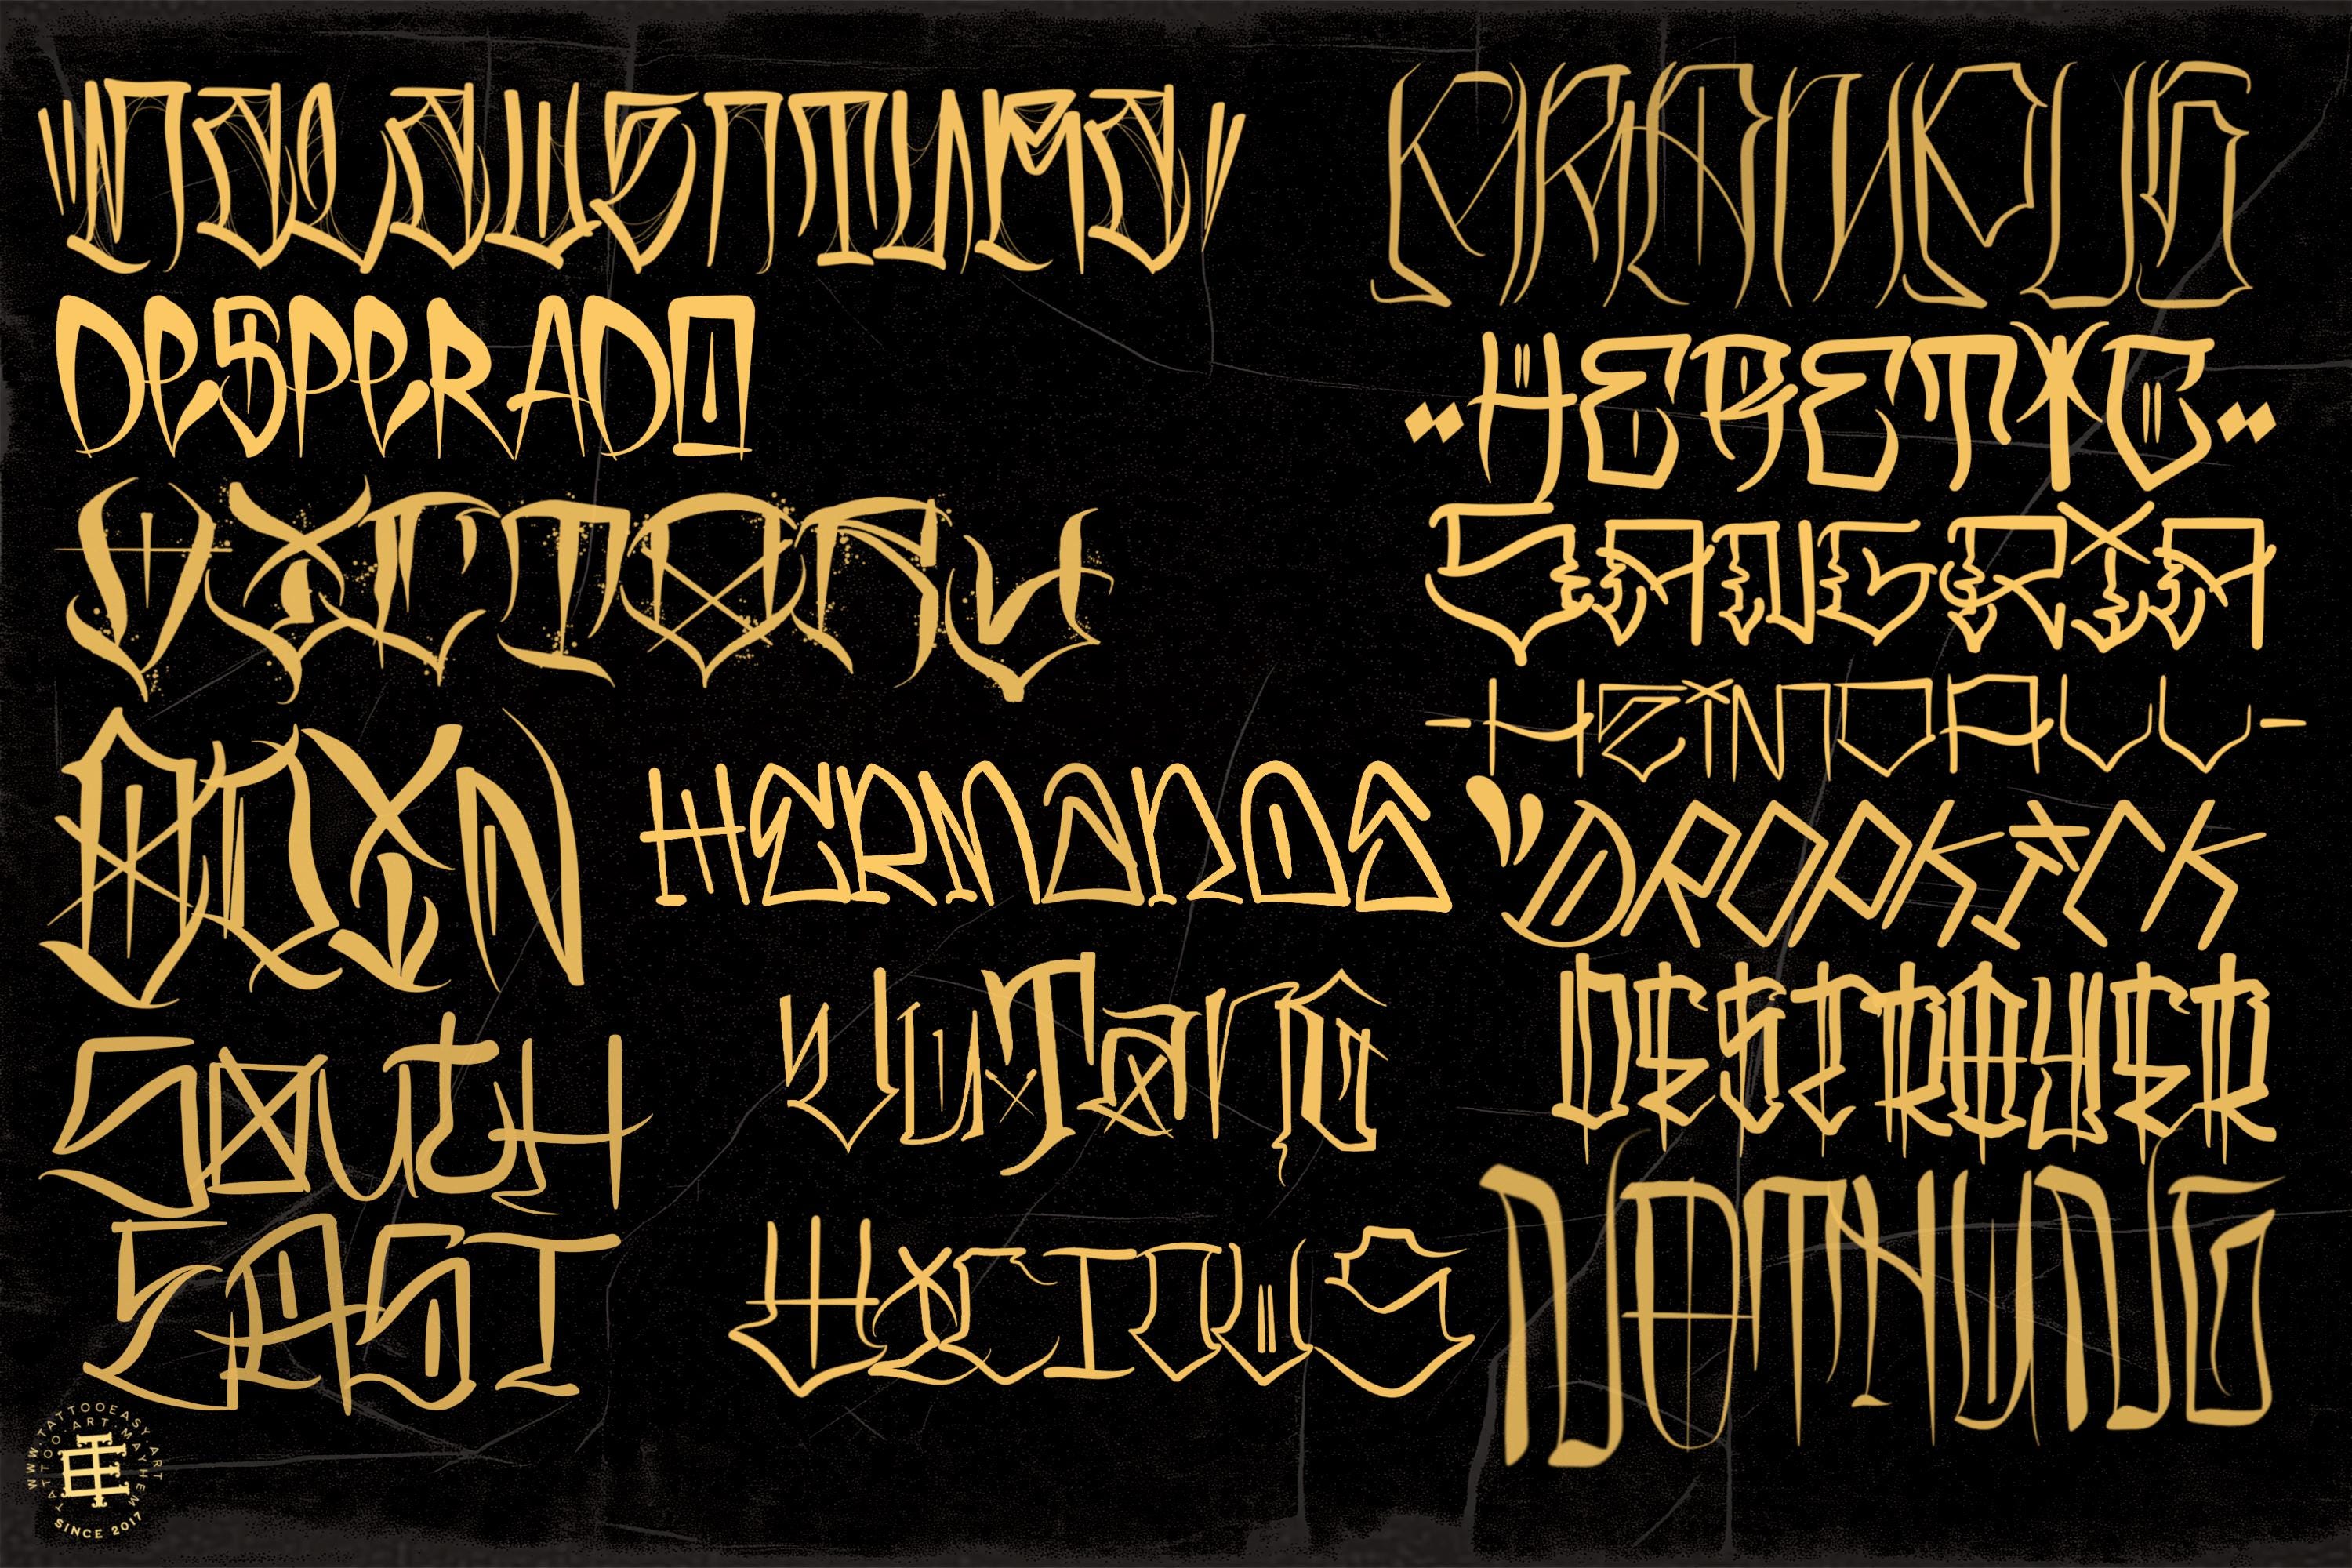 "MALAVENTURA"
DESPERADO
VICTORY
ODIN
SOUTH
EAST
HERMANOS
VICIOUS
HERETIC
SANGRIA
-HEIMDALL-
"DROPKICK
DESTROYER
NOTHUNG
WWW.TATTOOEASY.ART
TATTOO ART.MAYHEM
SINCE 2017